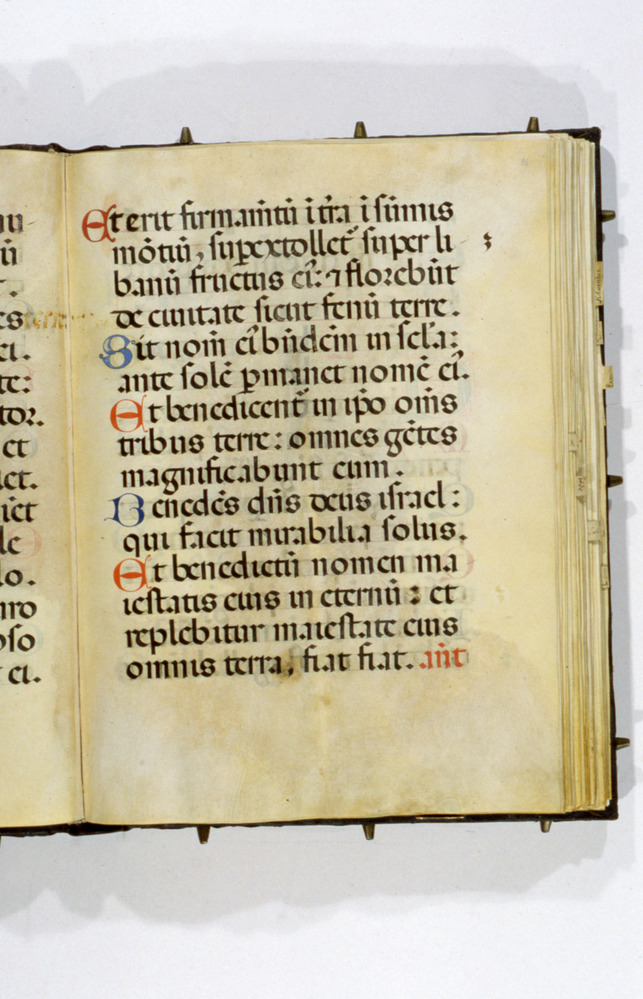 Et erit firmam̄tū ī tr̄a ī sūmis
mōtiū, supextollet̄ super li
banū fructus ei᷒: ⁊ florebūt
de ciuitate sicut fenū terre.
Sit nom̄ ei᷒ bn̄dcm̄ in scl̄a:
ante solē ꝑmanet nomē ei᷒.
Et benedicent̄ in ip̄o om̄s
tribus terre: omnes gētes
magnificabunt eum.
Benedc̄s dn̄s deus israel:
qui facit mirabilia solus.
Et benedictū nomen ma
iestatis eius in eternū: et
replebitur maiestate eius
omnis terra, fiat fiat. an̄t